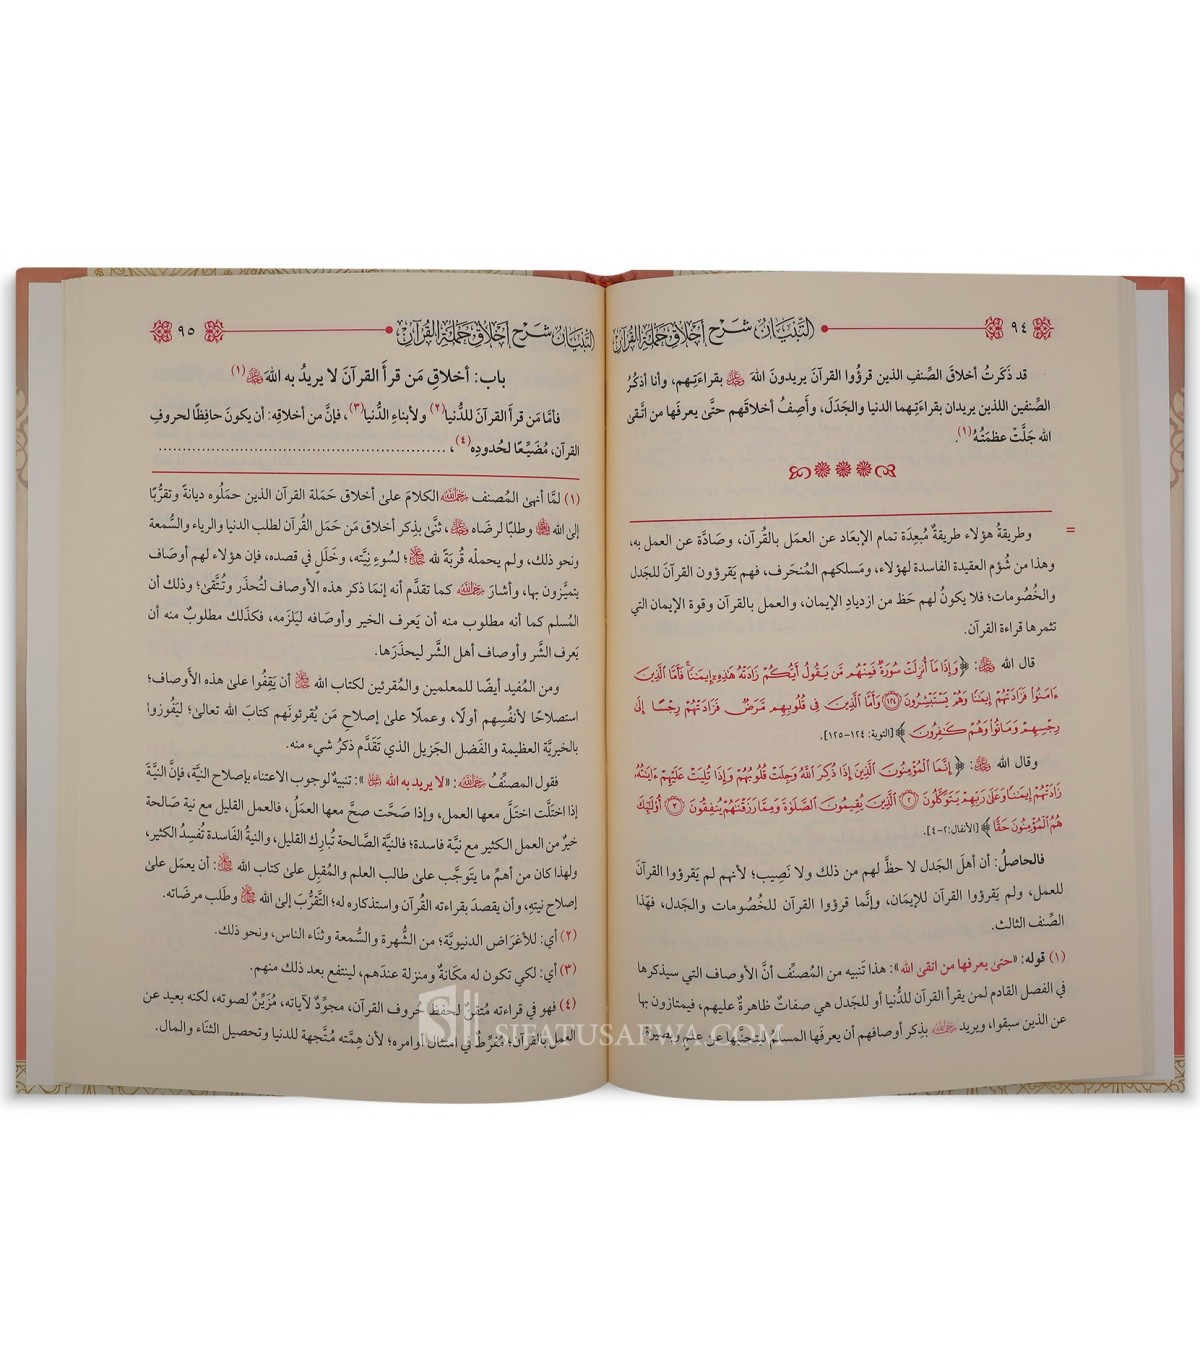 ٩٤ التِّبْيَانُ شَرْح أخلاق حملة القرآن
قد ذَكَرتُ أخلاقَ الصِّنفِ الذين قرؤُوا القرآنَ يريدونَ اللهَ ﷻ بقراءَتِـهم، وأنا أذكُرُ
الصِّنفين اللذين يريدان بقراءَتِـهما الدنيا والجَدَلَ، وأَصِفُ أخلاقَهم حتَّى يعرفَها من اتَّقىٰ
الله جَلَّتْ عظمَتُهُ(١).
= وطريقةُ هؤلاء طريقةٌ مُبعِدَة تمام الإبعَاد عن العمَل بالقُرآن، وصَادَّة عن العمل به،
وهذا من شُؤم العقيدة الفاسدة لهؤلاء، ومَسلكهم المنْحَرف، فهم يَقرؤون القرآنَ للجَدل
والخُصُومات؛ فلا يكونُ لهم حَظ من ازديادِ الإيمان، والعمل بالقرآن وقوة الإيمان التي
تثمرها قراءة القرآن.
قال الله ﷻ: ﴿وَإِذَا مَا أُنزِلَتْ سُورَةٌ فَمِنْهُم مَّن يَقُولُ أَيُّكُمْ زَادَتْهُ هَٰذِهِ إِيمَٰنًا فَأَمَّا الَّذِينَ
ءَامَنُوا فَزَادَتْهُمْ إِيمَٰنًا وَهُمْ يَسْتَبْشِرُونَ ١٢٤ وَأَمَّا الَّذِينَ فِي قُلُوبِهِم مَّرَضٌ فَزَادَتْهُمْ رِجْسًا إِلَىٰ
رِجْسِهِمْ وَمَاتُوا وَهُمْ كَٰفِرُونَ﴾ [التوبة: ١٢٤-١٢٥].
وقال الله ﷻ: ﴿إِنَّمَا الْمُؤْمِنُونَ الَّذِينَ إِذَا ذُكِرَ اللَّهُ وَجِلَتْ قُلُوبُهُمْ وَإِذَا تُلِيَتْ عَلَيْهِمْ ءَايَٰتُهُ
زَادَتْهُمْ إِيمَٰنًا وَعَلَىٰ رَبِّهِمْ يَتَوَكَّلُونَ ٢ الَّذِينَ يُقِيمُونَ الصَّلَوٰةَ وَمِمَّا رَزَقْنَٰهُمْ يُنفِقُونَ ٣ أُوْلَٰئِكَ
هُمُ الْمُؤْمِنُونَ حَقًّا﴾ [الأنفال: ٢-٤].
فالحاصلُ: أن أهلَ الجَدل لا حظَّ لهم من ذلك ولا نَصِيب؛ لأنهم لم يَقرؤوا القرآنَ
للعمل، ولم يَقرؤوا القرآن للإيمَان، وإنَّما قرؤوا القرآن للخُصُومات والجَدل، فهَذا
الصِّنف الثالث.
(١) قوله: «حتىٰ يعرفها من اتقىٰ الله»: هذا تَنبيه من المُصنِّف أنَّ الأوصاف التي سيذكرها
في الفصل القادم لمن يقرأ القرآن للدُّنيا أو للجَدل هي صفاتٌ ظاهرةٌ عليهم، فيمتازون بها
عن الذين سبقوا، ويريد رحمه الله بذِكر أوصافهم أن يعرفَها المسلمُ ليتجنَّبها عن علمٍ وبصيرة.
التِّبْيَان شَرْح أخلاق حملة القرآن ٩٥
باب: أخلاقِ مَن قرأَ القرآنَ لا يريدُ به اللهَ ﷻ(١)
فأمَّا مَن قرأَ القرآنَ للدُّنيا(٢) ولأبناءِ الدُّنيا(٣)، فإنَّ من أخلاقِه: أن يكونَ حافِظًا لحروفِ
القرآن، مُضَيِّعًا لحُدودِه(٤)، ....................................................
(١) لمَّا أنهىٰ المُصنف رحمه الله الكلامَ علىٰ أخلاق حَمَلة القرآن الذين حمَلُوه ديانةً وتقرُّبًا
إلىٰ الله ﷻ وطلبًا لرضاه ﷻ، ثنَّىٰ بذِكر أخلاق مَن حَمَل القُرآن لطلب الدنيا والرياء والسُّمعة
ونحو ذلك، ولم يحملْه قُربَةً لله ﷻ؛ لسُوءِ نِيَّته، وخَلَلٍ في قصده، فإن هؤلاء لهم أوصَاف
يتميَّزون بها، وأشارَ رحمه الله كما تقدَّم أنه إنمَا ذكر هذه الأوصاف لتُحذَر وتُتَّقىٰ؛ وذلك أن
المُسلم كما أنه مطلوب منه أن يَعرف الخير وأوصَافه ليَلزَمه، فكذَلك مطلوبٌ منه أن
يَعرف الشَّر وأوصاف أهل الشَّر ليحذَرَها.
ومن المُفيد أيضًا للمعلمين والمُقرئين لكتاب الله ﷻ أن يَقِفُوا علىٰ هذه الأوصاف؛
استصلاحًا لأنفُسِهم أولًا، وعملًا علىٰ إصلاحِ مَن يُقرئونَهم كتابَ الله تعالىٰ؛ ليَفُوزوا
بالخيريَّة العظيمة والفَضل الجَزيل الذي تَقَدَّم ذكرُ شيء منه.
فقول المصنِّفُ رحمه الله: «لا يريد به الله ﷻ»: تنبيهٌ لوجوب الاعتناء بإصلاح النيَّة، فإنَّ النيَّة
إذا اختلَّت اختَلَّ معها العمل، وإذا صَحَّت صحَّ معها العمَلُ، فالعمل القليل مع نية صَالحة
خيرٌ من العمل الكثير مع نيَّة فاسدة؛ فالنيَّة الصَّالحة تُبارك القليل، والنيةُ الفَاسدة تُفسِدُ الكثير،
ولهذا كان من أهمِّ ما يتوجَّب علىٰ طالب العلم والمُقبِل علىٰ كتاب الله ﷻ: أن يعمَل علىٰ
إصلاح نيتهِ، وأن يقصدَ بقراءته القُرآن واستذكاره له؛ التَّقرُّبَ إلىٰ الله ﷻ وطَلب مرضَاته.
(٢) أي: للأغرَاض الدنيويَّة؛ من الشُّهرة والسُّمعة وثنَاء الناس، ونحو ذلك.
(٣) أي: لكي تكون له مكَانةٌ ومنزلة عندَهم، لينتفع بعد ذلك منهم.
(٤) فهو في قراءته مُتقنٌ لحفظ حُروف القرآن، مجوِّدٌ لآياته، مُزَيِّنٌ لصوته، لكنه بعيد عن
العمَل بالقُرآن؛ مُفرِّطٌ في امتثال أوامره؛ لأن هِمَّته مُتَّجهة للدنيا وتحصيل الثنَاء والمال.
SIFATUSAFWA.COM